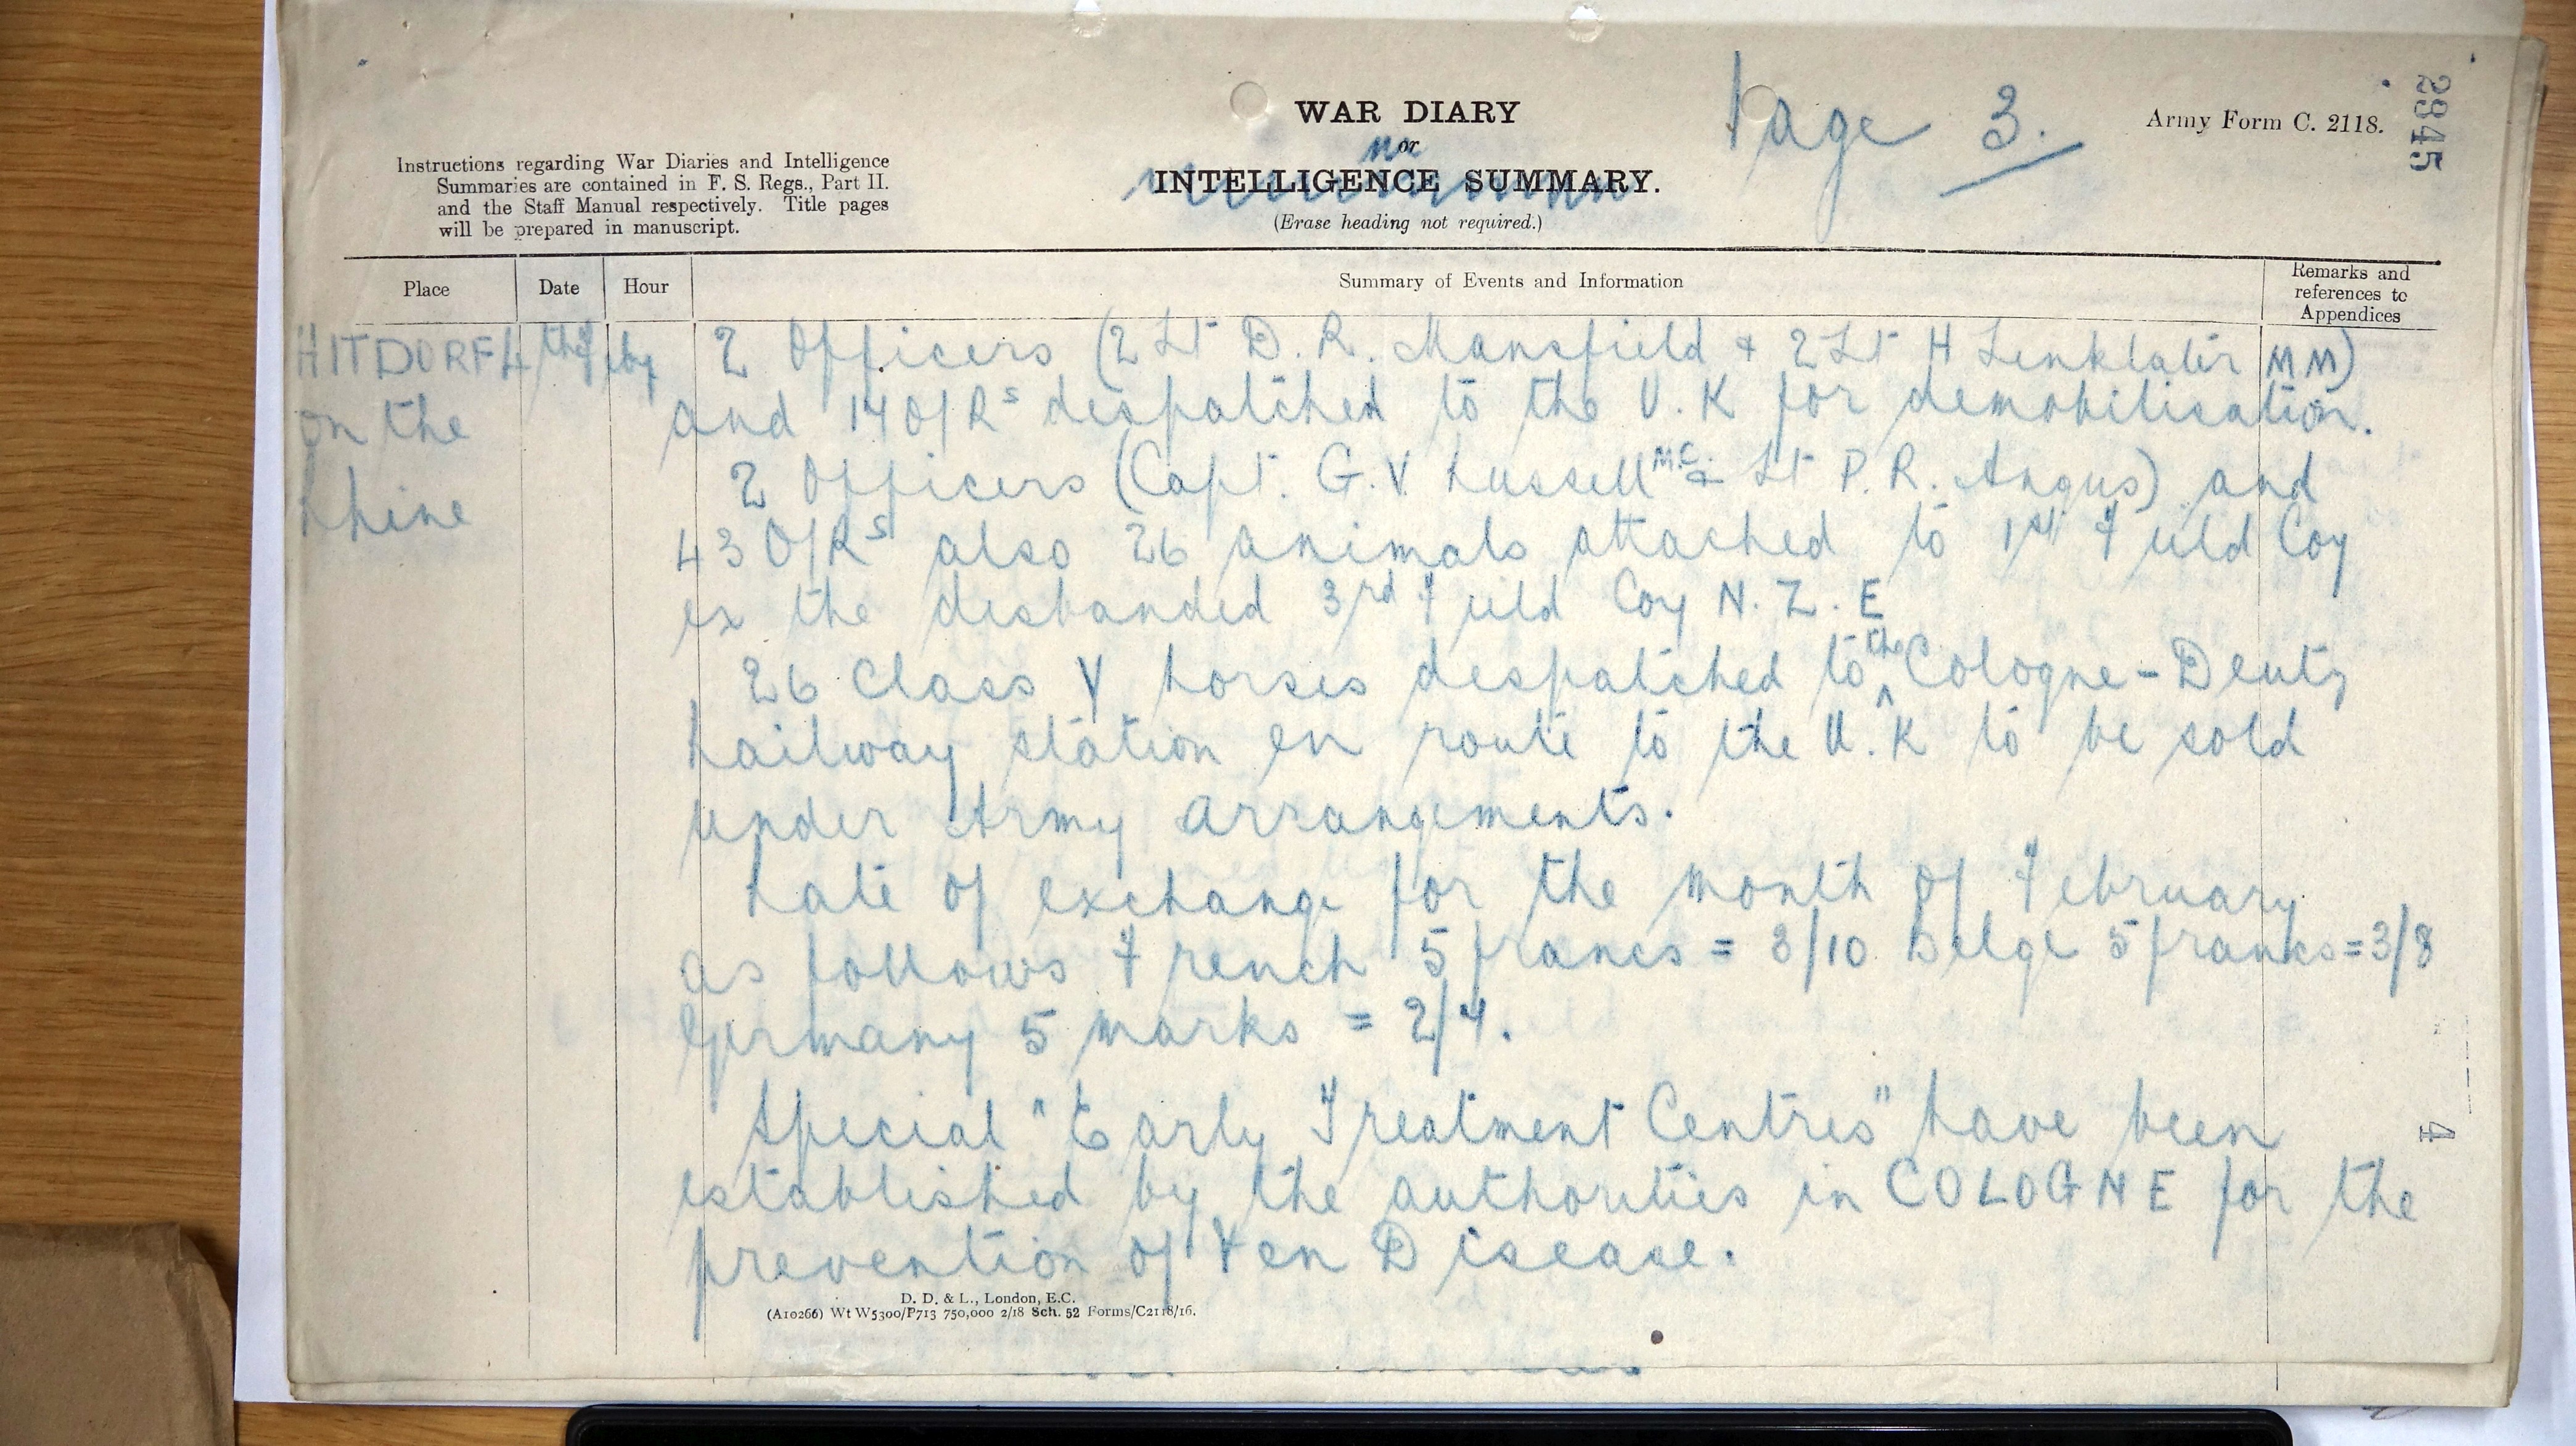 WAR DIARY
or
INTELLIGENCE SUMMARY.
(Erase heading not required.)
Page 3.
Army Form C. 2118.
2345
Instructions regarding War Diaries and Intelligence
Summaries are contained in F. S. Regs., Part II.
and the Staff Manual respectively. Title pages
will be prepared in manuscript.
Place Date Hour Summary of Events and Information Remarks and references to Appendices
HITDORF 4th Feby
on the
Rhine
2 Officers (2 Lt D. R. Mansfield + 2 Lt H Linklater MM)
and 14 O/Rs despatched to the U.K for demobilisation.
2 Officers (Capt. G.V. Russell M.C. & Lt P.R. Angus) and
43 O/Rs also 26 animals attached to 1st Field Coy
ex the disbanded 3rd Field Coy N.Z.E
26 Class Y horses despatched to the Cologne-Deutz
Railway station en route to the U.K to be sold
under Army arrangements.
Rate of exchange for the month of February
as follows French 5 francs = 3/10 Belge 5 franks = 3/8
Germany 5 marks = 2/4.
Special "Early Treatment Centres" have been
established by the authorities in COLOGNE for the
prevention of Ven Disease.
4
D. D. & L., London, E.C.
(A10266) Wt W5300/P713 750,000 2/18 Sch. 52 Forms/C2118/16.